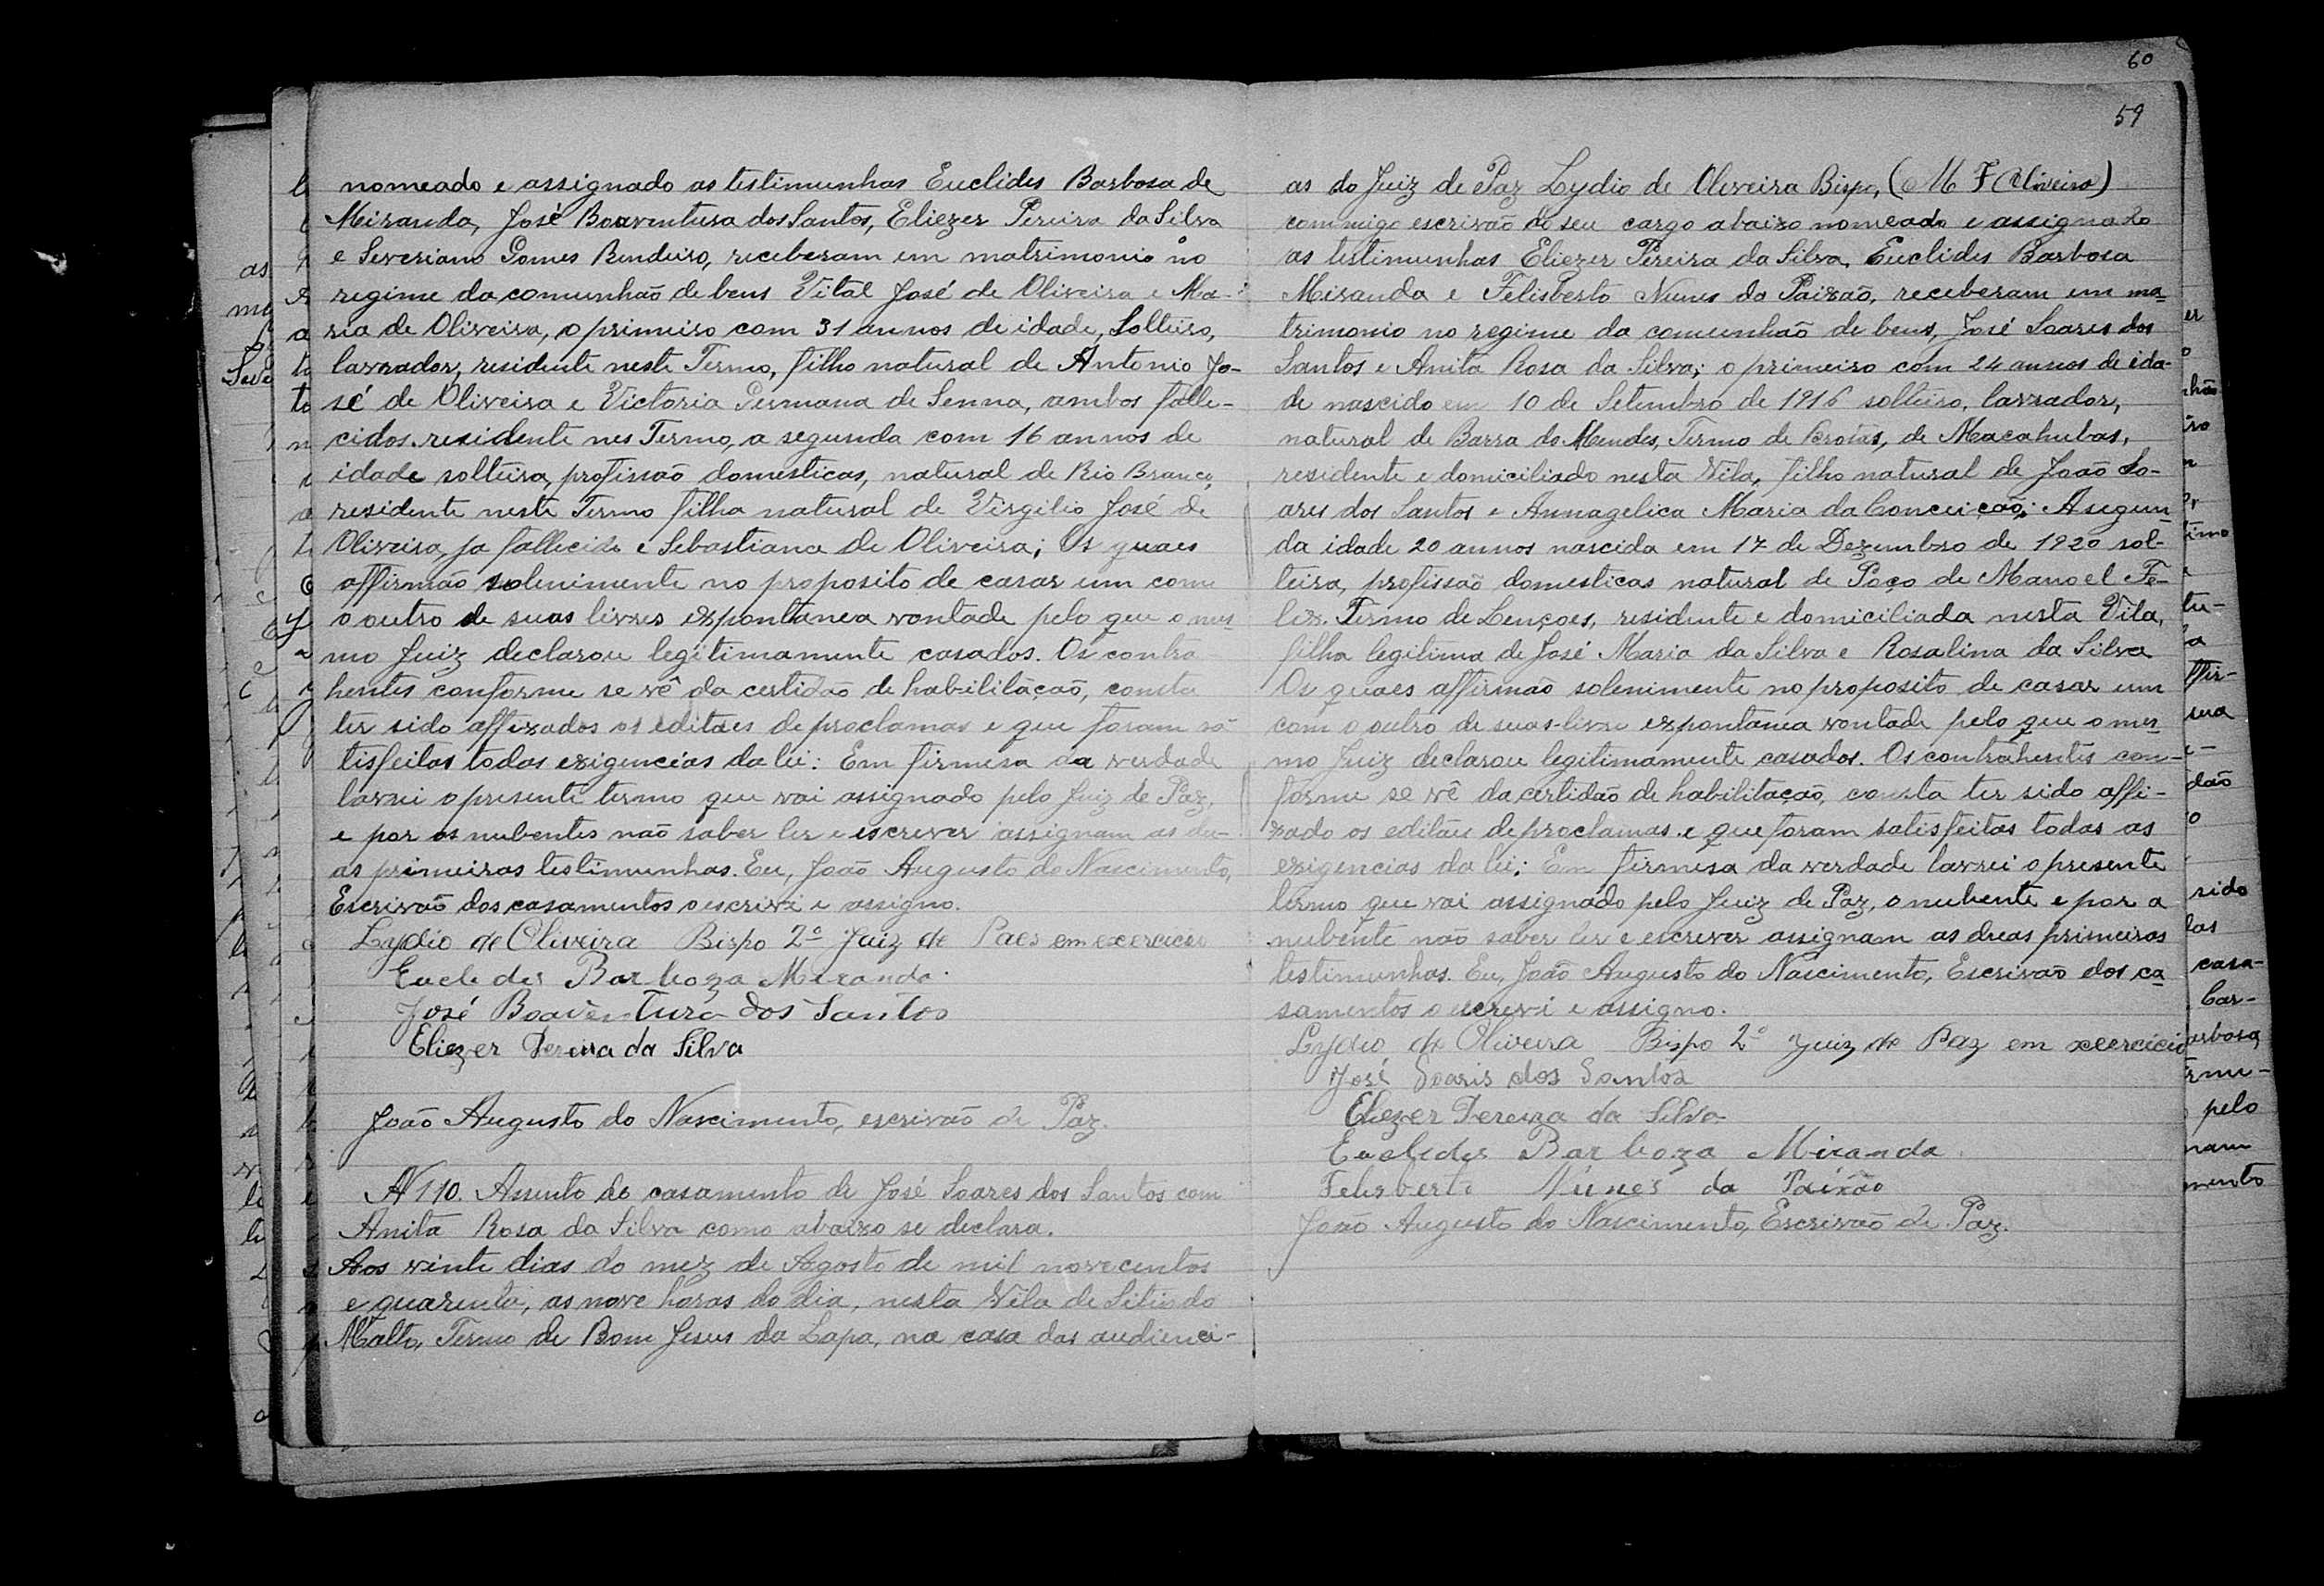 nomeado e assignado as testimunhas Euclides Barbosa de
Miranda, José Boaventura dos Santos, Eliezer Pereira da Silva
e Severiano Gomes Rendeiro, receberam em matrimonio no
regime da comunhão de bens Vital José de Oliveira e Ma-
ria de Oliveira, o primeiro com 31 annos de idade, Solteiro,
lavrador, residente neste Termo, filho natural de Antonio Jo-
sé de Oliveira e Victoria Germana de Senna, ambos falle-
cidos residente nes Termo, a segunda com 16 annos de
idade solteira, profissão domesticas, natural de Rio Branco,
residente neste Termo filha natural de Virgilio José de
Oliveira, ja fallecido e Sebastiana de Oliveira; Os quaes
affirmão solenimente no proposito de casar um com
o outro de suas livres expontanea vontade pelo que o mes-
mo Juiz declarou legitimamente casados. Os contra
hentes conforme se vê da certidão de habilitação, consta
ter sido affixados os editaes de proclamas e que foram sa-
tisfeitas todas exigencias da lei: Em firmesa da verdade
lavrei o presente termo que vai assignado pelo Juiz de Paz,
e por os nubentes não saber ler e escrever assignam as du-
as primeiras testimunhas. Eu, João Augusto do Nascimento,
Escrivão dos casamentos o escrivi e assigno.
Lydio de Oliveira Bispo 2º Juiz de Paes em exercicio
Euclides Barboza Miranda.
José Boaventura dos Santos
Eliezer Pereira da Silva
João Augusto do Nascimento, escrivão de Paz.
N 110. Assento do casamento de José Soares dos Santos com
Anita Rosa da Silva como abaixo se declara.
Aos vinte dias do mez de Agosto de mil novecentos
e quarenta, as nove horas do dia, nesta Vila de Sitio do
Matto, Termo de Bom Jesus da Lapa, na casa das audienci-
60
59
as do Juiz de Paz Lydio de Oliveira Bispo, (M F Oliveira)
commigo escrivão do seu cargo abaixo nomeado e assignado
as testimunhas Eliezer Pereira da Silva, Euclides Barbosa
Miranda e Felisberto Nunes da Paixão, receberam em ma-
trimonio no regime da comunhão de bens, José Soares dos
Santos e Anita Rosa da Silva; o primeiro com 24 annos de ida-
de nascido em 10 de Setembro de 1916 solteiro, lavrador,
natural de Barra do Mendes, Termo de Brotas, de Macahubas,
residente e domiciliado nesta Vila, filho natural de João So-
ares dos Santos e Annagelica Maria da Conceição; A segun-
da idade 20 annos nascida em 17 de Dezembro de 1920 sol-
teira, profissão domesticas natural de Poço de Manoel Fe-
lix. Termo de Lençoes, residente e domiciliada nesta Vila,
filha legitima de José Maria da Silva e Rosalina da Silva
Os quaes affirmão solenimente no proposito de casar um
com o outro de suas livre expontanea vontade pelo que o mes-
mo Juiz declarou legitimamente casados. Os contrahentes con-
forme se vê da certidão de habilitação, consta ter sido affi-
xado os editáes de proclamas e que foram satisfeitas todas as
exigencias da lei; Em firmesa da verdade lavrei o presente
termo que vai assignado pelo Juiz de Paz, o nubente e por a
nubente não saber ler e escrever assignam as duas primeiras
testimunhas. Eu, João Augusto do Nascimento, Escrivão dos ca-
samentos o escrevi e assigno.
Lydio de Oliveira Bispo 2º Juiz de Paz em xercicio
José Soaris dos Santos
Eliezer Pereira da Silva
Euclides Barboza Miranda.
Felisberto Núnes da Paixão
João Augusto do Nascimento, Escrivão de Paz.